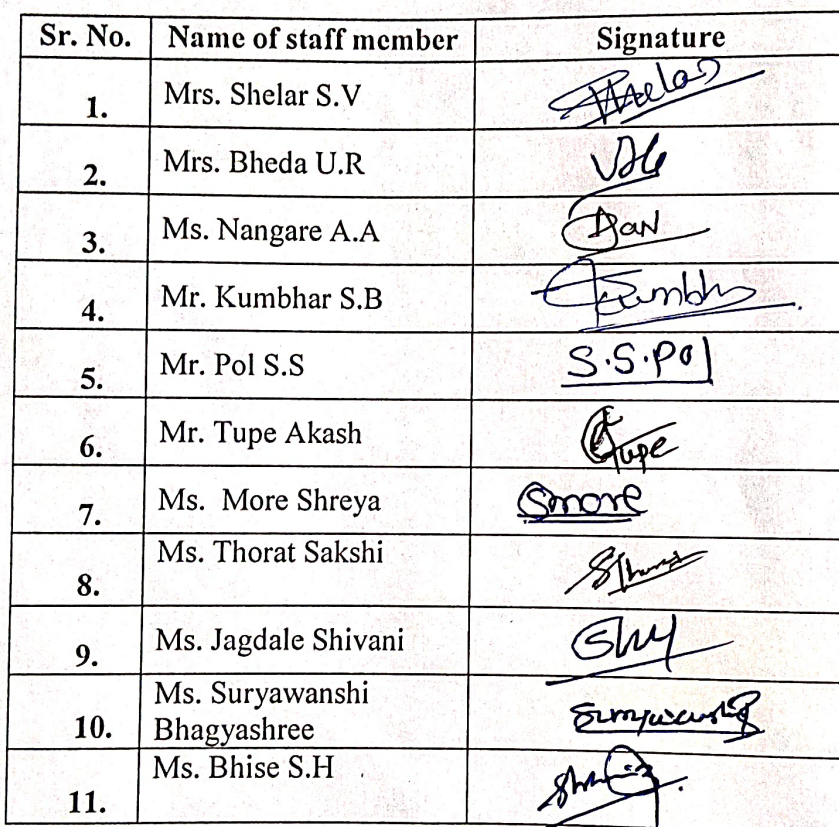 Sr. No. Name of staff member Signature
1. Mrs. Shelar S.V Shelar
2. Mrs. Bheda U.R
3. Ms. Nangare A.A
4. Mr. Kumbhar S.B Kumbh
5. Mr. Pol S.S S.S.Pol
6. Mr. Tupe Akash Tupe
7. Ms. More Shreya Smore
8. Ms. Thorat Sakshi
9. Ms. Jagdale Shivani
10. Ms. Suryawanshi
Bhagyashree Suryawanshi
11. Ms. Bhise S.H